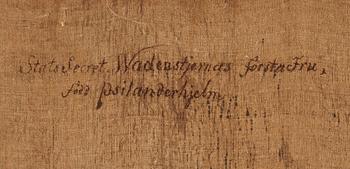 Stats Secret. Wadenstjernes första Fru,
född Psilanderhjelm.